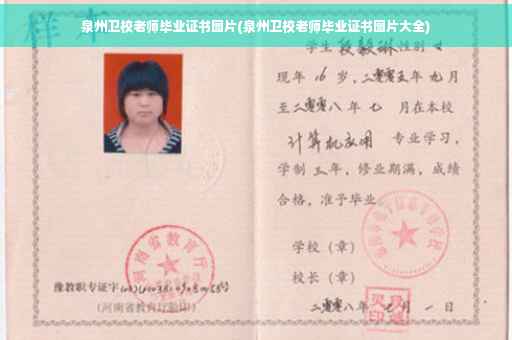 泉州卫校老师毕业证书图片(泉州卫校老师毕业证书图片大全)
样本
学生 段毅琳 性别 女
现年 16 岁，二零零五年 九月
至二零零八年 七 月在本校
计算机应用 专业学习，
学制 三 年，修业期满，成绩
合格，准予毕业
学校（章）
校长（章）
二零零八年 七 月 一 日
河南省教育厅
豫教职专证字
(河南省教育厅验印)